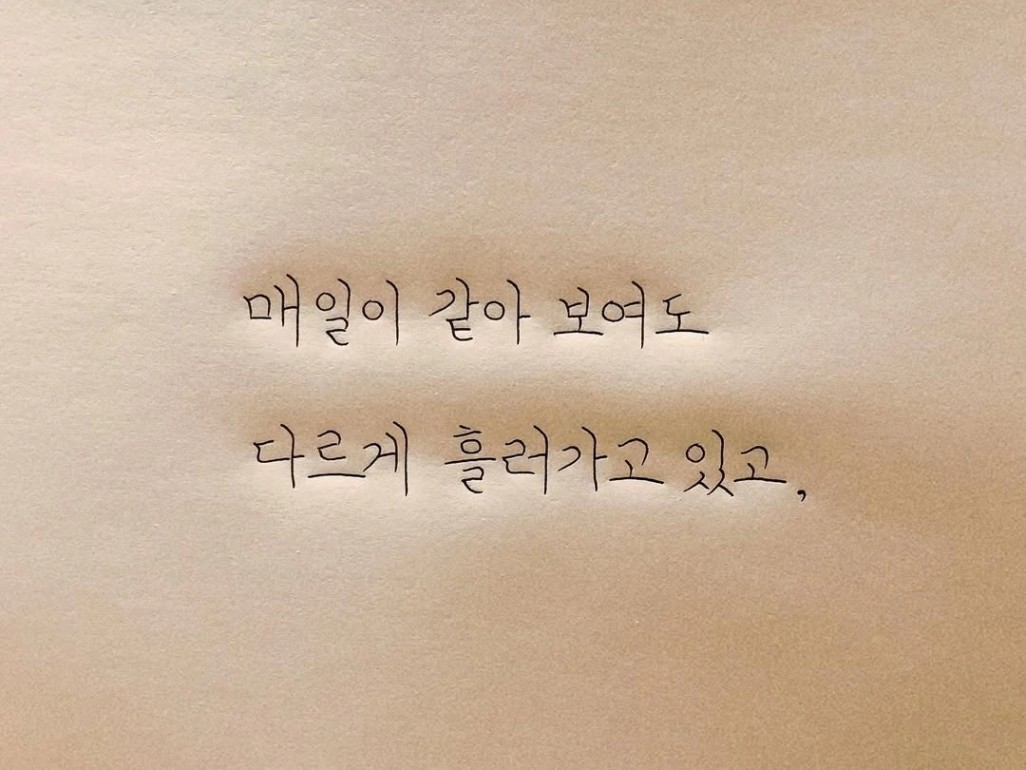 매일이 같아 보여도
다르게 흘러가고 있고,